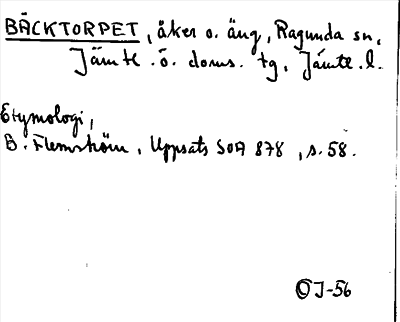 BÄCKTORPET, åker o. äng, Ragunda sn,
Jämte. ö. doms. tg. Jämte. l.
Etymologi,
B. Flemström, Uppsats SOA 878, s. 58.
OJ-56